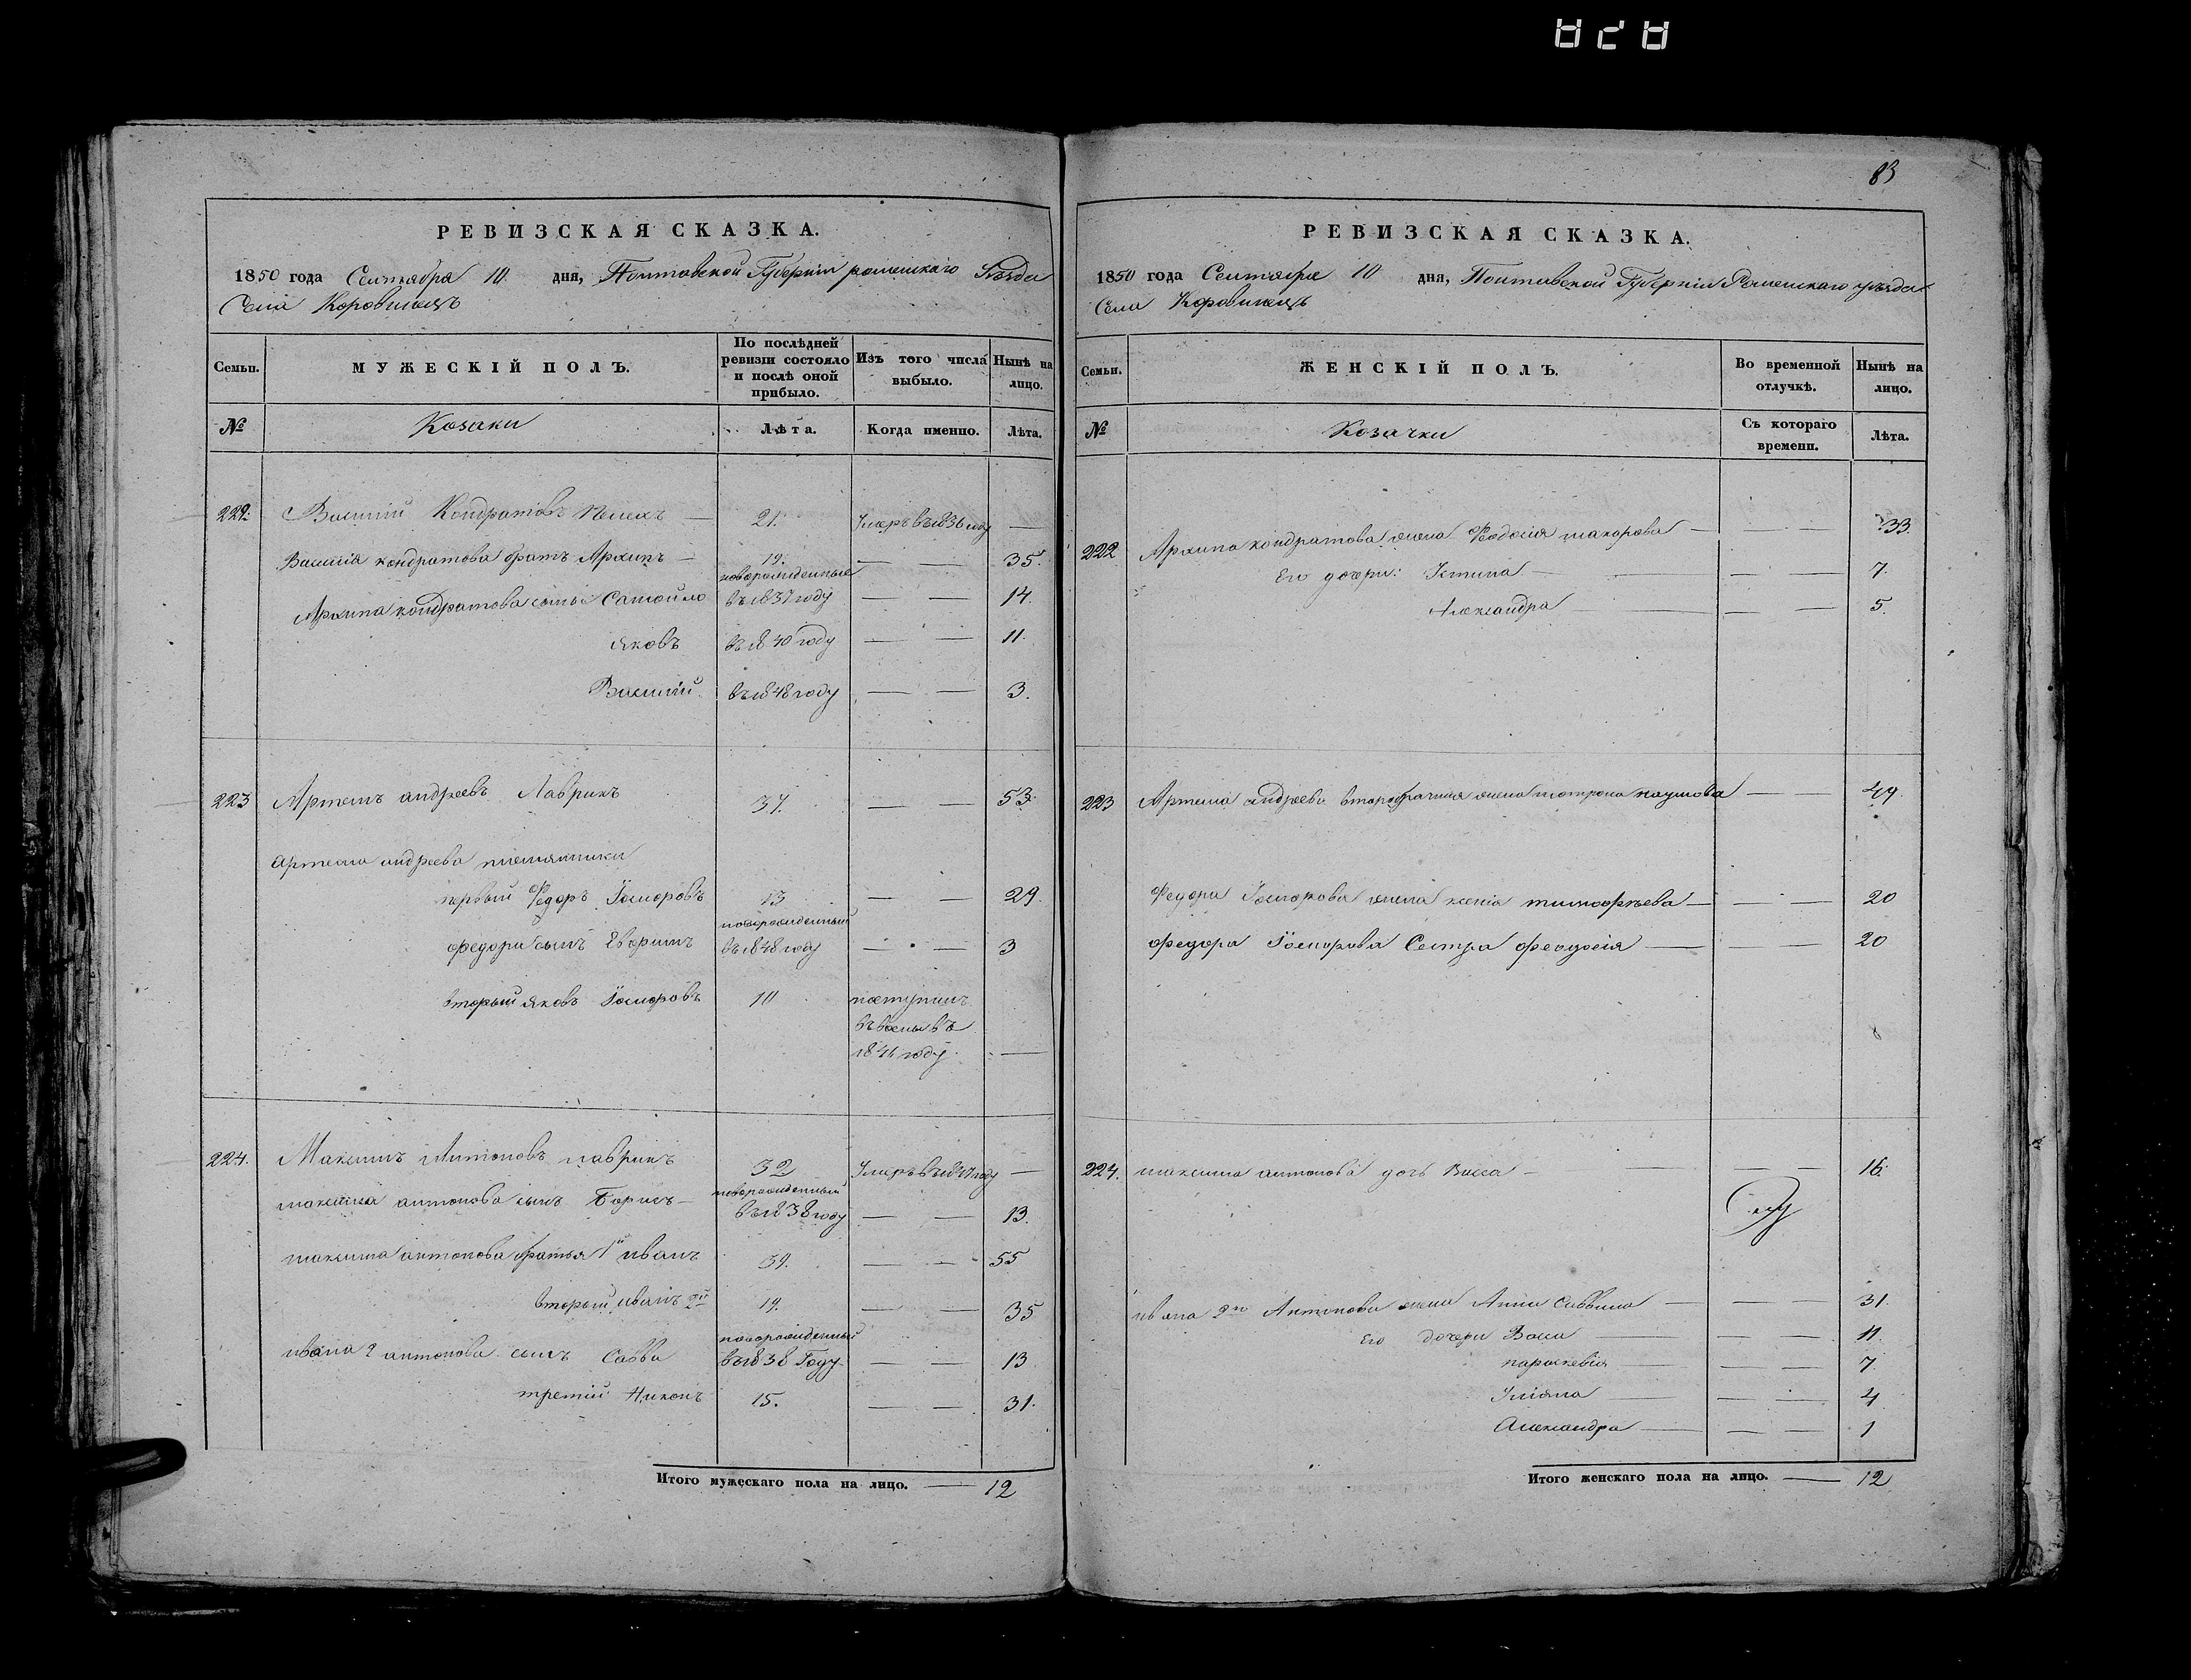 828
83
РЕВИЗСКАЯ СКАЗКА.
1850 года Сентября 10 дня, Полтавской Губерніи роменскаго Уѣзда
Села Коровинецъ
Семьи.
МУЖЕСКІЙ ПОЛЪ.
По послѣдней ревизіи состояло и послѣ оной прибыло.
Изъ того числа выбыло.
Нынѣ на лицо.
№
Козаки
Лѣта.
Когда именно.
Лѣта.
222. Василій Кондратовъ 21. Умеръ въ 1836 году —
Василія кондратова братъ Архипъ — 19. — — 35.
новорожденные
Архипа кондратова сынъ Самойло въ 1837 году — — 14.
яковъ въ 1840 году — — 11.
Василій въ 1848 году — — 3.
223 Артемъ андреевъ Лаврикъ 37. — — 53.
Артема андреева племянники
первый Федоръ Їосиповъ 13 — — 29.
новорожденный
федора сынъ въ 1848 году — — 3
вторый яковъ Їосиповъ 10 поступилъ
въ въ
1841 году. —
224. Максимъ Антоновъ лаврикъ 32 Умеръ въ 1847 году —
новорожденный
максима антонова сынъ Борисъ — въ 1838 году — — 13.
максима антонова братья 1й иванъ 39. — — 55
вторый иванъ 2й 19. — — 35
новорожденный
ивана 2 антонова сынъ Савва въ 1838 Году — — 13
третій Никонъ 15. — — 31.
Итого мужескаго пола на лицо. — 12
РЕВИЗСКАЯ СКАЗКА.
1850 года Сентября 10 дня, Полтавской Губерніи Роменскаго уѣзда
Села Коровинецъ
Семьи.
ЖЕНСКІЙ ПОЛЪ.
Во временной отлучкѣ.
Нынѣ на лицо.
№
Козачки
Съ котораго времени.
Лѣта.
222 Архипа кондратова жена Феодосія макарова — — — 33.
Его дочери: Устина — — — 7.
Александра — — — 5.
223 Артема андреева второбрачная жена матрона наумова — — 49.
Федора Їосипова жена ксенія тимофѣева — — — 20
федора Їосипова Сестра феодосія — — — 20
224. максима антонова дочь Васса — — 16.
ивана 2го Антонова жена Анна Саввина — — — 31.
Его дочери Васса — — — 11.
параскевія — — — 7.
Уліяна — — — 4
Александра — — — 1
Итого женскаго пола на лицо. — 12